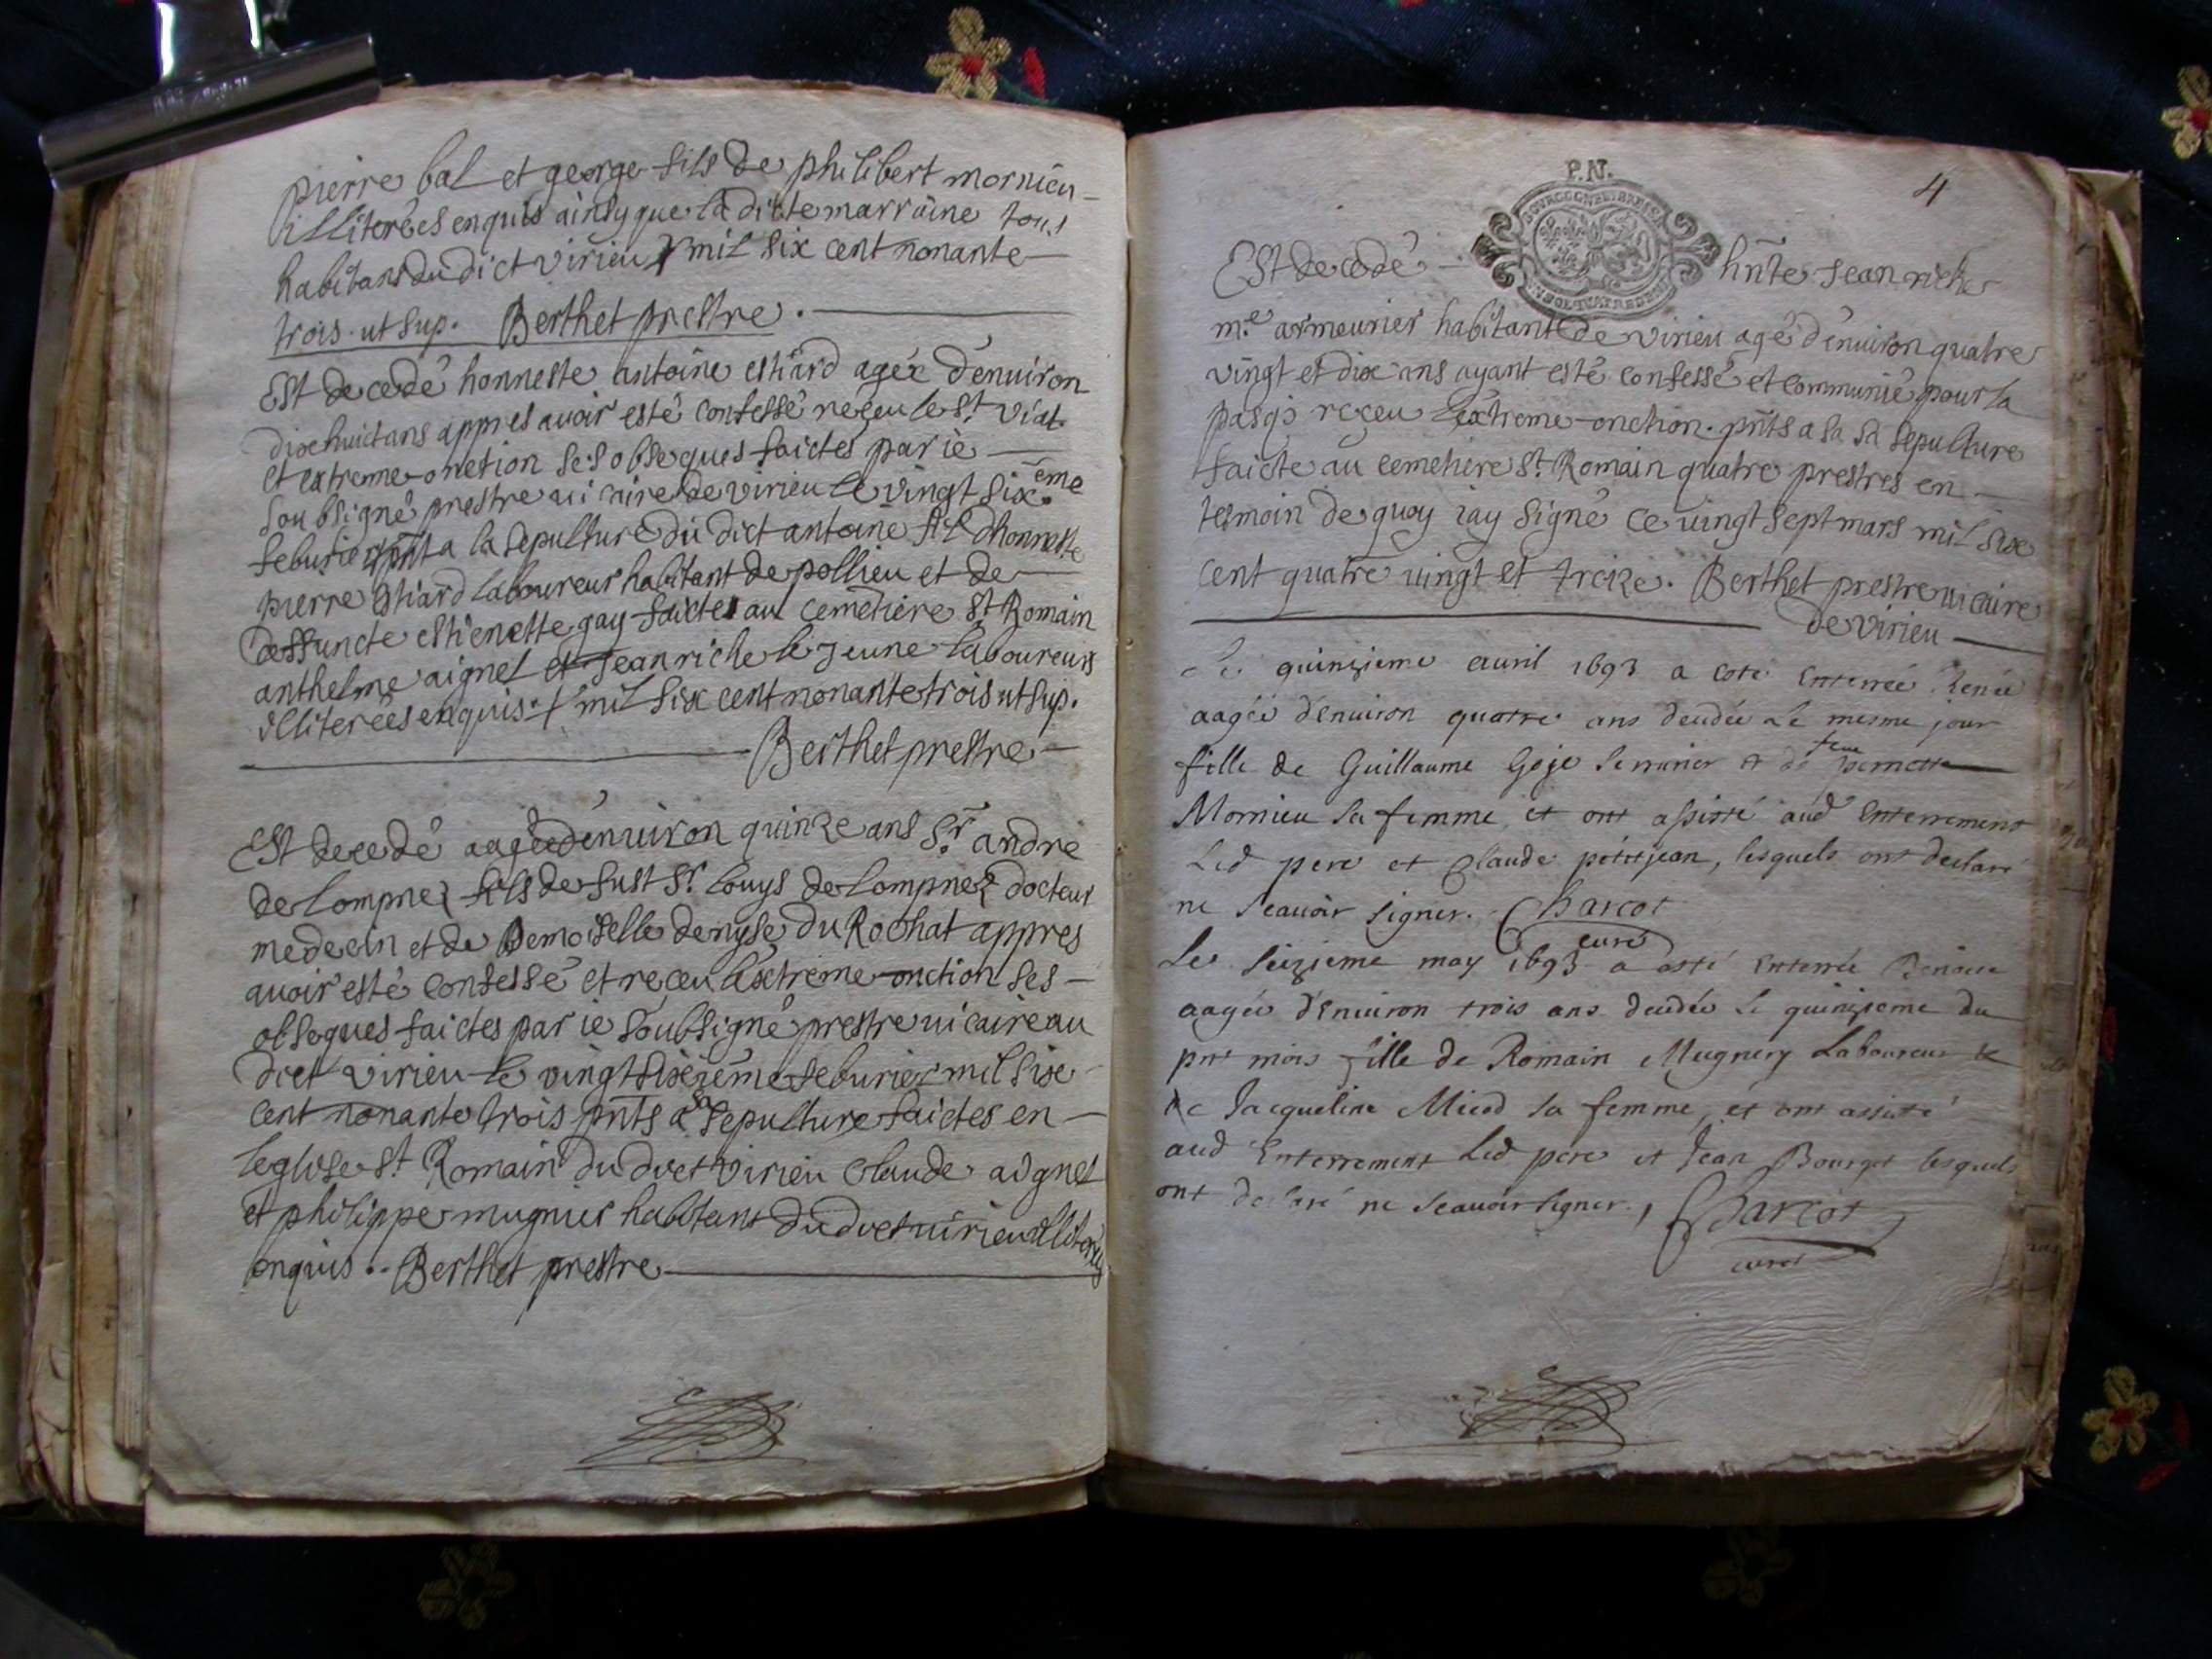 pierre bal et george fils de philibert mornieu
illiterées enquis ainsy que la dicte marraine tous
habitans du dict virieu mil six cent nonante
trois. ut sup. Berthet prestre.
Est decedé honneste antoine estiard agée d'enuiron
dixhuict ans appres auoir esté confessé reçeu le St viat.
et extreme-onction ses obseques faictes par ie
soubsigné prestre uicaire de virieu le vingt sixeme
feburier pnt a la sepulture du dict antoine fil d'honneste
pierre estiard laboureur habitant de pollieu et de
deffuncte estienette gay faictes au cemetiere St Romain
anthelme aignel et Jean riche le jeune laboureurs
illiterées enquis. mil six cent nonante trois ut sup.
Berthet prestre
Est decedé aagée d'enuiron quinze ans Sr. andré
de lompnez fils de fust Sr. louys de lompnez docteur
medecin et de Demoiselle denyse du Rochat appres
auoir esté confessé et reçeu l'extreme-onction ses
obseques faictes par ie soubsigné prestre uicaire au
dict virieu le vingt sixieme feburier mil six
cent nonante trois pnts a sa sepulture faictes en
leglise St Romain du dict virieu claude aignel
et philippe mugnier habitans du dict uirieu illiterés
enquis.. Berthet prestre
P.N.
4
Est decedé hnte Jean riche
me. armeurier habitant de virieu agé d'enuiron quatre
vingt et dix ans ayant esté confessé et communié pour la
pasq's reçeu l'extreme-onction. pnts a la sa sepulture
faicte au cemetiere St. Romain quatre prestres en
tesmoin de quoy iay signé ce uingt sept mars mil six
cent quatre uingt et treize. Berthet prestre uicaire
de virieu
Le quinzieme auril 1693 a esté enterrée Renée
aagée d'enuiron quatre ans decedée le mesme jour
fille de Guillaume Goje serrurier et de feue pernette
Mornieu sa femme, et ont assisté aud enterrement
led pere et Claude petitjean, lesquels ont declaré
ne scauoir signer. Charcot
curé
Le seizieme may 1693 a esté enterrée Benoite
aagée d'enuiron trois ans decedée le quinzieme du
pnt mois fille de Romain Mugnery Laboureur &
de Jacqueline Micod sa femme, et ont assisté
aud enterrement led pere et Jean Bourget lesquels
ont declaré ne scauoir signer., Charcot
curé